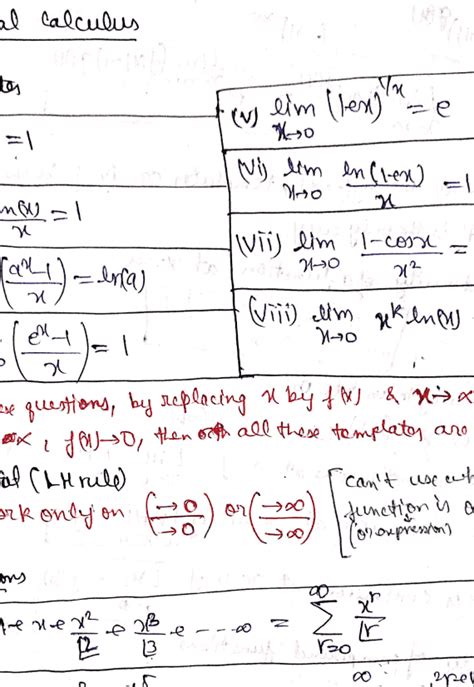 al calculus
tes
(v) lim x→0 (1+x)^1/x = e
= 1
(vi) lim x→0 ln(1+x)/x = 1
n(x)/x = 1
(vii) lim x→0 1-cosx/x² =
(a^x-1/x) = ln(a)
(viii) lim x→0 x^k ln(x)
(e^x-1/x) = 1
se questions, by replacing x by f(x) & x→∝
∝, f(x)→0, then all these templates are
al (LH rule)
ork only on (→0/→0) or (→∞/→∞)
[can't use
function is
(or expression)
ons
1+x+x²/⌊2+x³/⌊3+---∞ = ∞∑r=0 x^r/⌊r
∞